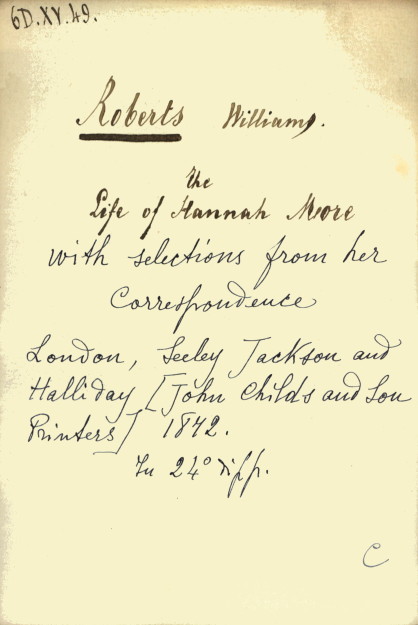 6D.XV.49.
Roberts William.
The
Life of Hannah More
with selections from her
Correspondence
London, Seeley Jackson and
Halliday [John Childs and Son
Printers] 1842.
In 24°
C